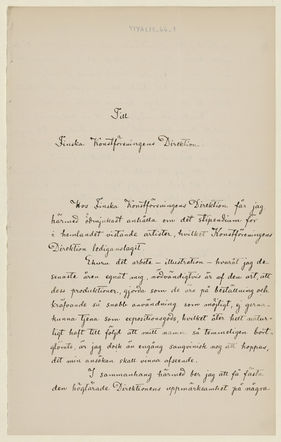 Till
Finska Konstföreningens Direktion.
Hos Finska Konstföreningens Direktion får jag
härmed ödmjukast anhålla om det stipendium för
i hemlandet vistande artister, hvilket Konstföreningens
Direktion lediganslagit.
Ehuru det arbete – illustration – hvaråt jag de
senaste åren egnat mig, nödvändigtvis är af den art, att
dess produktioner, gjorda som de äro på beställning och
kräfvande så snabb användning som möjligt, ej gerna
kunna tjena som expositionsgods, hvilket åter helt natur-
ligt haft till följd att mitt namn så temmeligen bort-
glömts är jag dock än engång sangvinisk nog att hoppas,
det min ansökan skall vinna afseende.
I sammanhang härmed ber jag att få fästa
den högtärade Direktionens uppmärksamhet på några